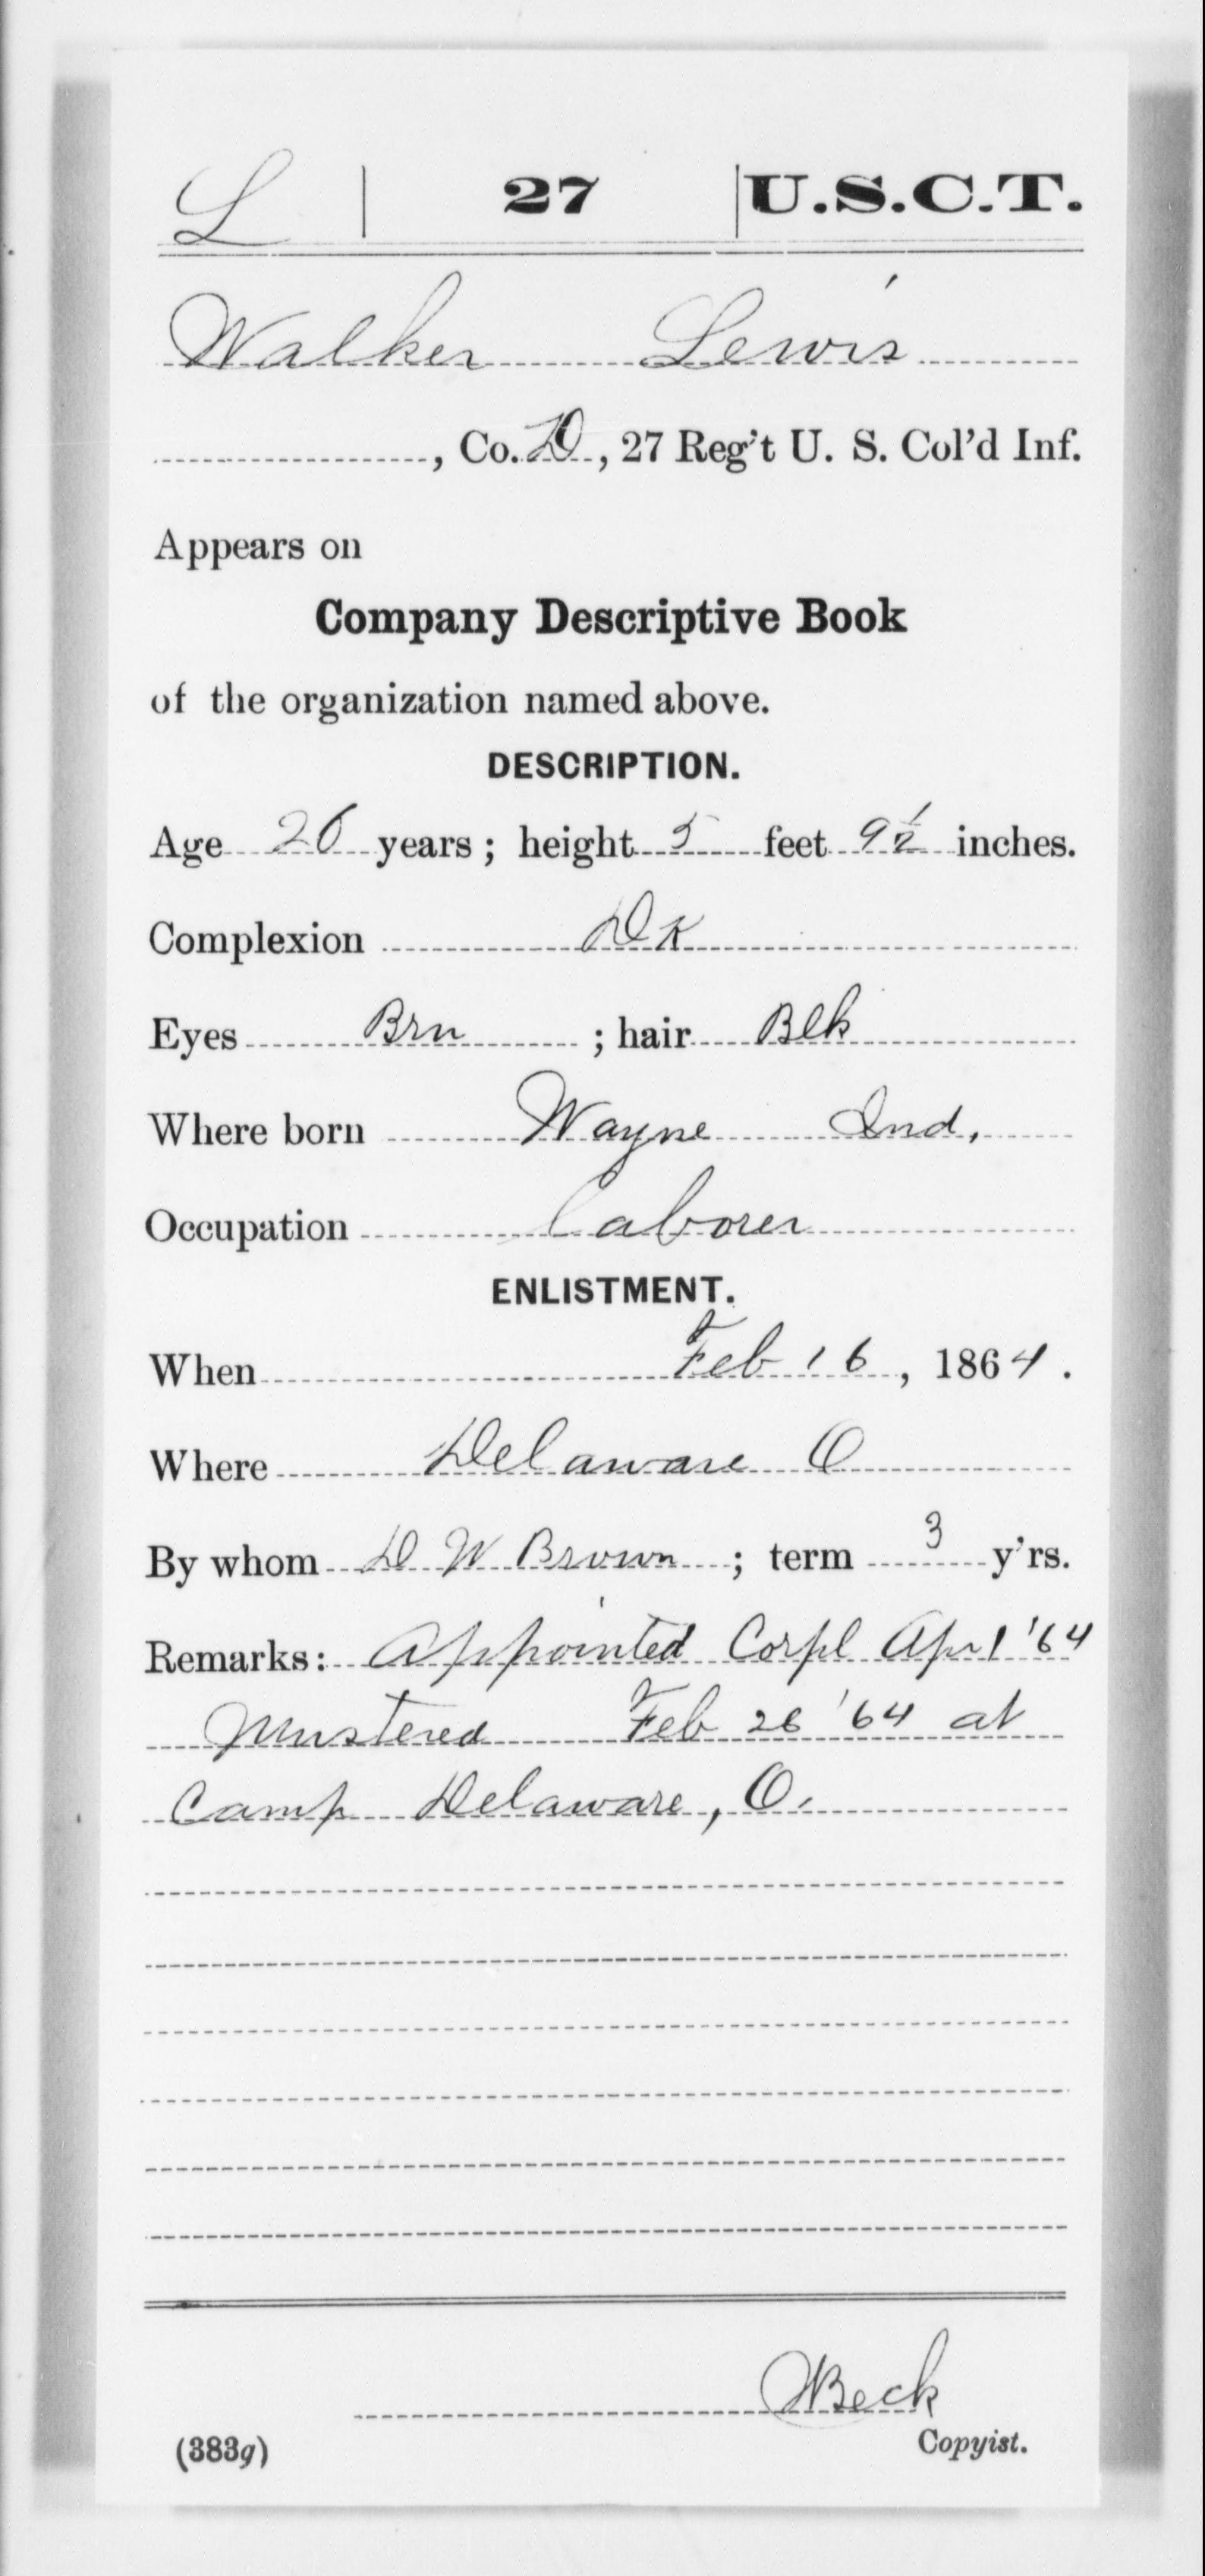 L | 27 | U.S.C.T.
Walker Lewis
, Co. D, 27 Reg't U. S. Col'd Inf.
Appears on
Company Descriptive Book
of the organization named above.
DESCRIPTION.
Age 26 years; height 5 feet 9½ inches.
Complexion Dk
Eyes Brn ; hair Blk
Where born Wayne Ind.
Occupation Laborer
ENLISTMENT.
When Feb 16, 1864.
Where Delaware O
By whom D W Brown ; term 3 y'rs.
Remarks: Appointed Corpl Apr 1 '64
Mustered Feb 26 '64 at
Camp Delaware, O.
Beck
(383g) Copyist.